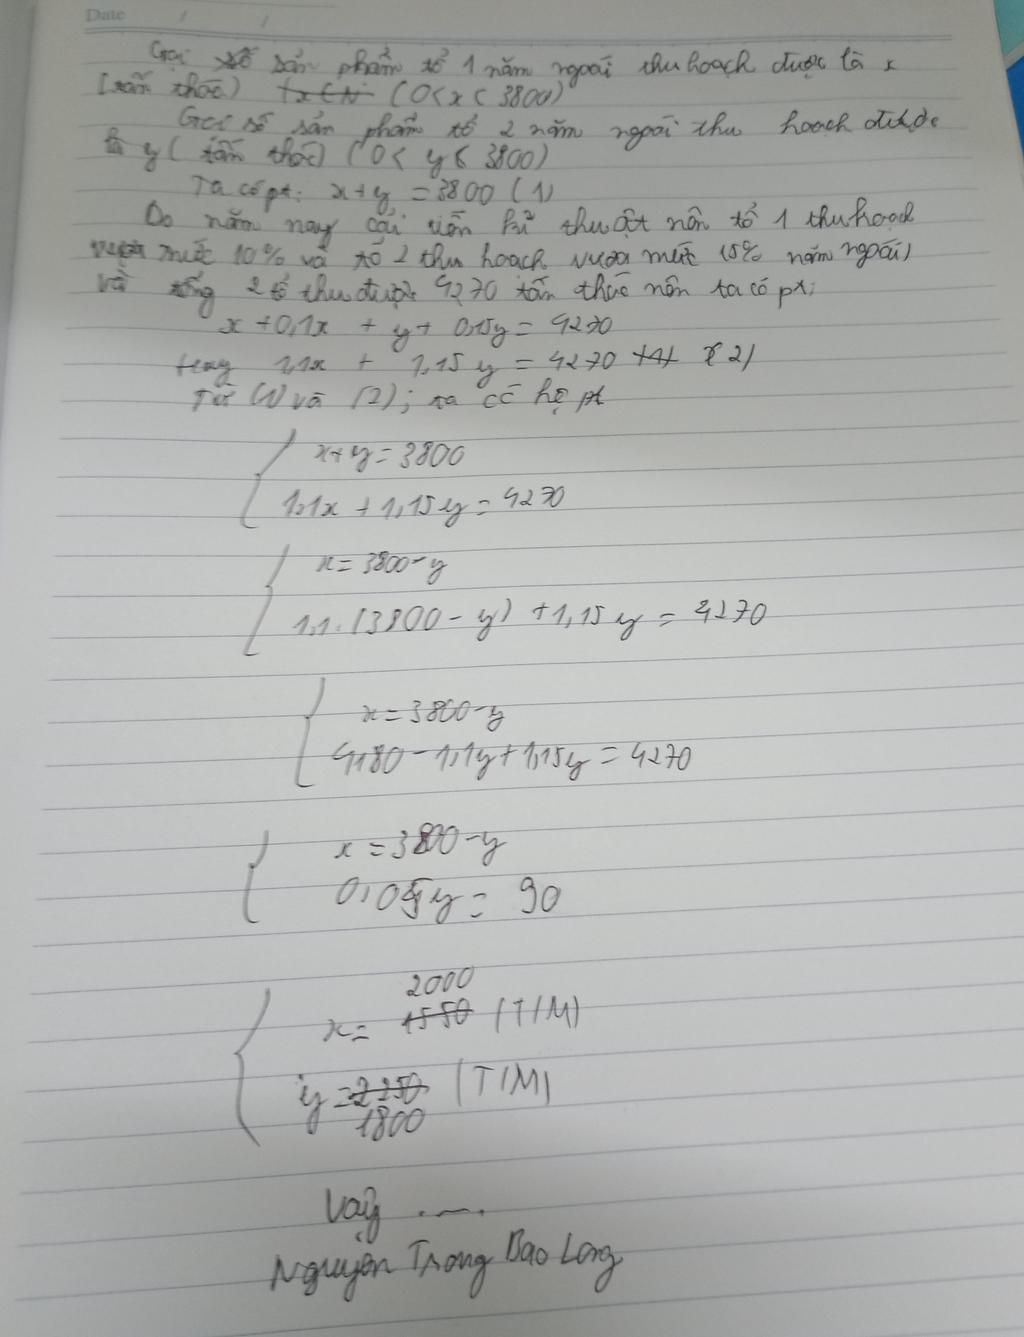 Date / /
Gọi số sản phẩm tổ 1 năm ngoái thu hoạch được là x
(tấn thóc) (0 < x < 3800)
Gọi số sản phẩm tổ 2 năm ngoái thu hoạch được
là y (tấn thóc) (0 < y < 3800)
Ta có pt: x + y = 3800 (1)
Do năm nay cải tiến kĩ thuật nên tổ 1 thu hoạch
vượt mức 10% và tổ 2 thu hoạch vượt mức 15% năm ngoái)
và tổng 2 tổ thu được 4270 tấn thóc nên ta có pt:
x + 0,1x + y + 0,15y = 4270
hay 1,1x + 1,15y = 4270 (2)
Từ (1) và (2); ta có hệ pt
x + y = 3800
1,1x + 1,15y = 4270
x = 3800 - y
1,1.(3800 - y) + 1,15y = 4270
x = 3800 - y
4180 - 1,1y + 1,15y = 4270
x = 3800 - y
0,05y = 90
2000
x = 1550 (T/M)
y = 2250 (T/M)
1800
Vậy ....
Nguyễn Trong Bao Long